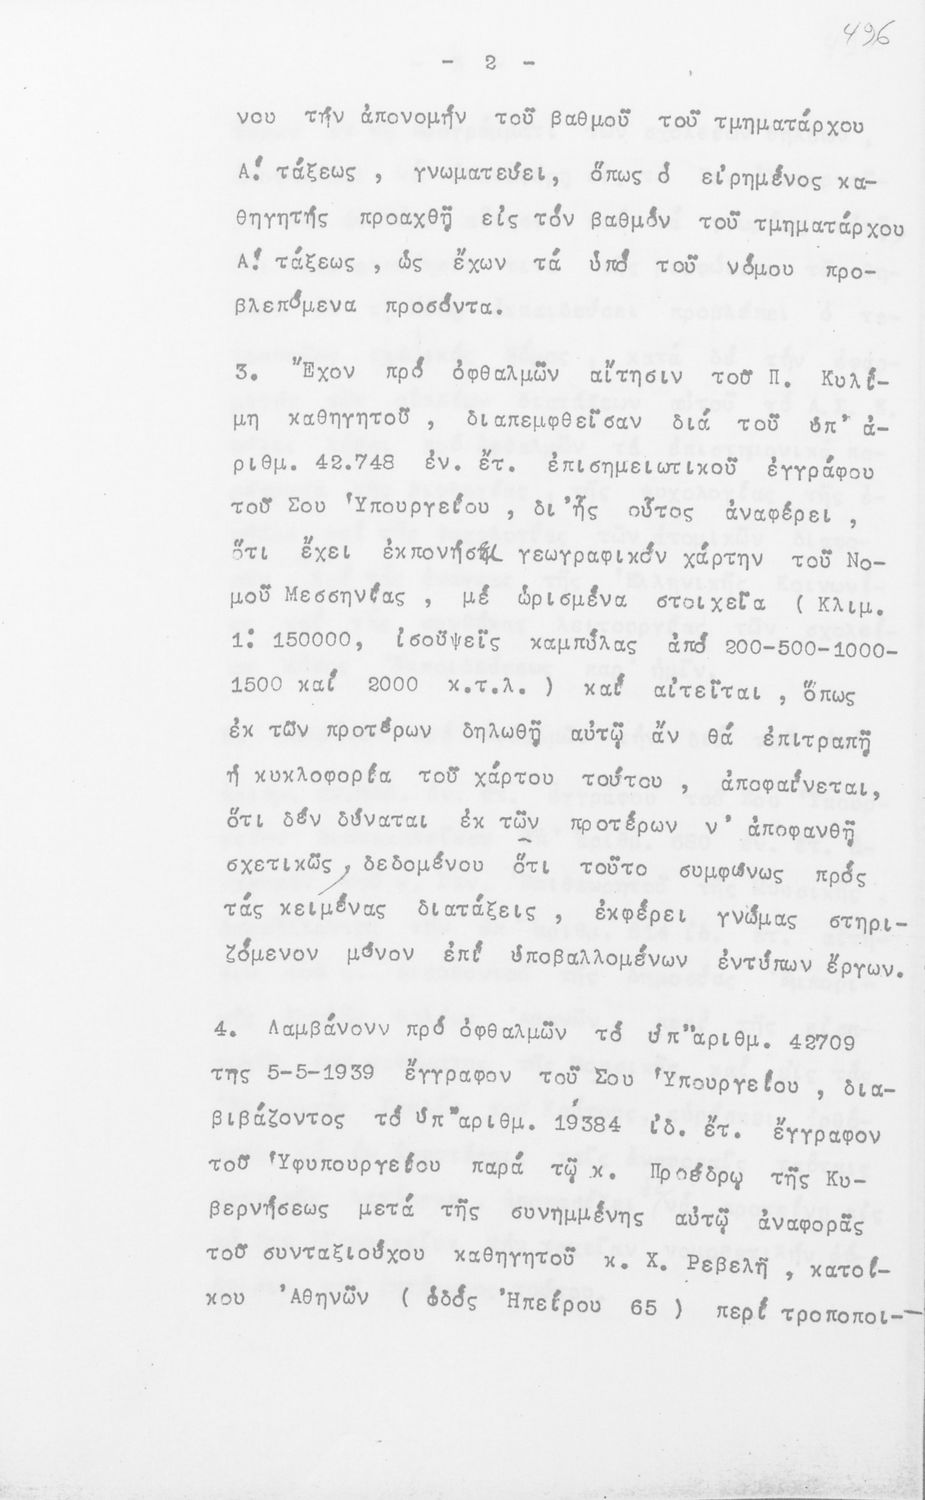 496
- 2 -
νου τήν ἀπονομήν τοῦ βαθμοῦ τοῦ τμηματάρχου
Α! τάξεως , γνωματεύει, ὅπως ὁ εἰρημένος κα-
θηγητής προαχθῇ εἰς τόν βαθμόν τοῦ τμηματάρχου
Α! τάξεως , ὡς ἔχων τά ὑπό τοῦ νόμου προ-
βλεπόμενα προσόντα.
3. Ἔχον πρό ὀφθαλμῶν αἴτησιν τοῦ Π. Κυλί-
μη καθηγητοῦ , διαπεμφθεῖσαν διά τοῦ ὑπ' ἀ-
ριθμ. 42.748 ἐν. ἔτ. ἐπισημειωτικοῦ ἐγγράφου
τοῦ Σου Ὑπουργείου , δι 'ἧς οὗτος ἀναφέρει ,
ὅτι ἔχει ἐκπονήσει γεωγραφικόν χάρτην τοῦ Νο-
μοῦ Μεσσηνίας , μέ ὡρισμένα στοιχεῖα ( Κλιμ.
1: 150000, ἰσοϋψεῖς καμπύλας ἀπό 200-500-1000-
1500 καί 2000 κ.τ.λ. ) καί αἰτεῖται , ὅπως
ἐκ τῶν προτέρων δηλωθῇ αὐτῷ ἄν θά ἐπιτραπῇ
ἡ κυκλοφορία τοῦ χάρτου τούτου , ἀποφαίνεται,
ὅτι δέν δύναται ἐκ τῶν προτέρων ν' ἀποφανθῇ
σχετικῶς, δεδομένου ὅτι τοῦτο συμφώνως πρός
τάς κειμένας διατάξεις , ἐκφέρει γνώμας στηρι-
ζόμενον μόνον ἐπί ὑποβαλλομένων ἐντύπων ἔργων.
4. Λαμβάνονν πρό ὀφθαλμῶν τό ὑπ"αριθμ. 42709
της 5-5-1939 ἔγγραφον τοῦ Σου Ὑπουργείου , δια-
βιβάζοντος τό ὑπ"αριθμ. 19384 ἰδ. ἔτ. ἔγγραφον
τοῦ Ὑφυπουργείου παρά τῷ κ. Προέδρῳ τῆς Κυ-
βερνήσεως μετά τῆς συνημμένης αὐτῷ ἀναφορᾶς
τοῦ συνταξιούχου καθηγητοῦ κ. Χ. Ρεβελῆ , κατοί-
κου Ἀθηνῶν ( ὁδός Ἠπείρου 65 ) περί τροποποι-